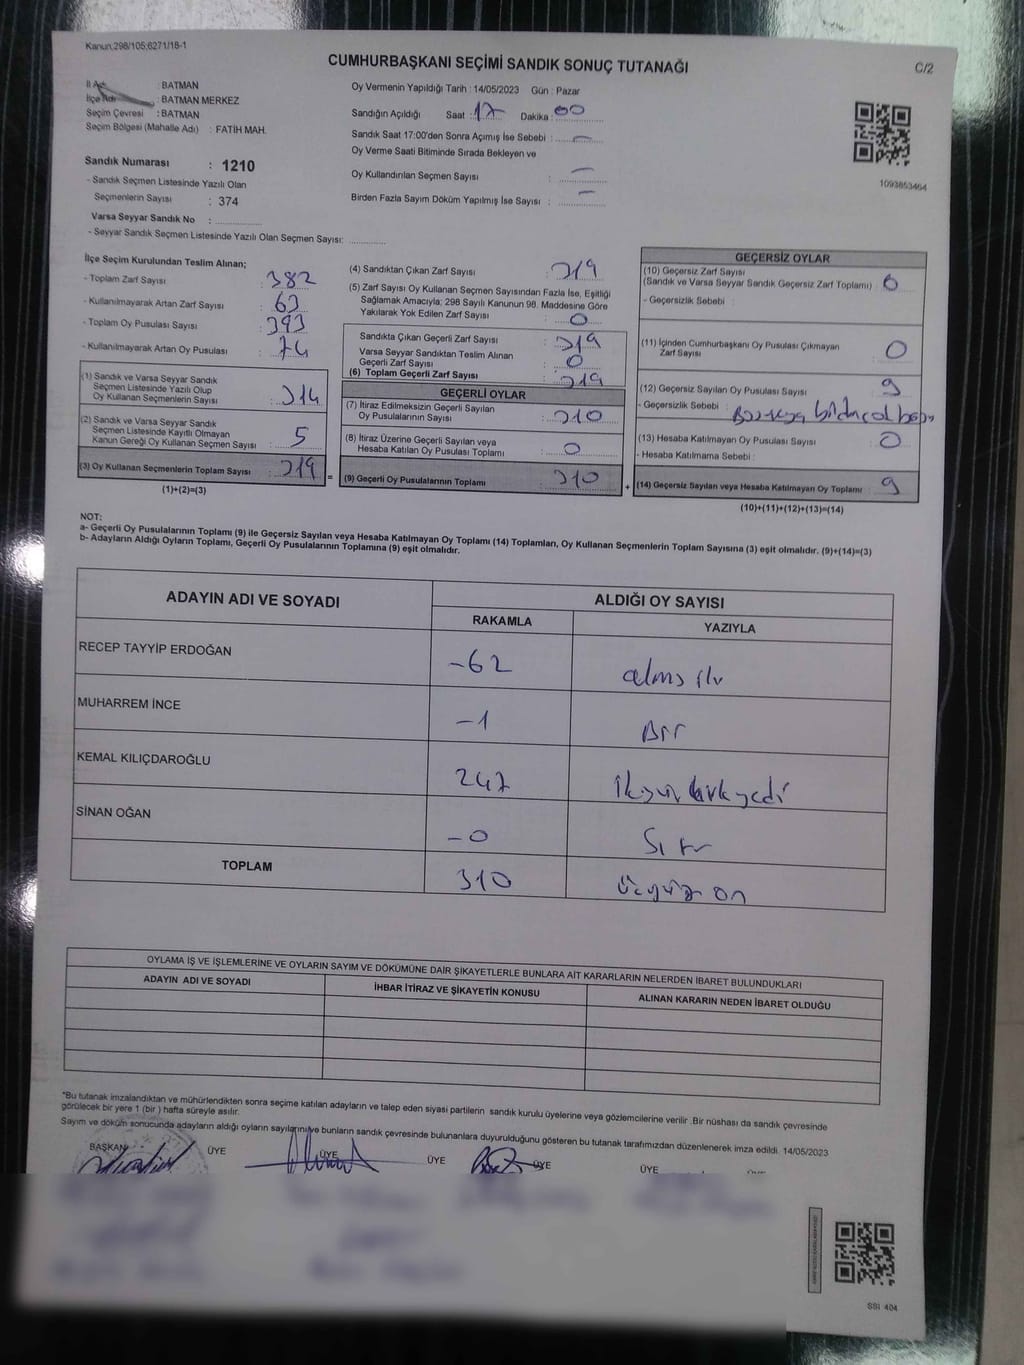 Kanun:298/105;6271/18-1
CUMHURBAŞKANI SEÇİMİ SANDIK SONUÇ TUTANAĞI
C/2
İl Adı : BATMAN
İlçe Adı : BATMAN MERKEZ
Seçim Çevresi : BATMAN
Seçim Bölgesi (Mahalle Adı) : FATİH MAH.
Sandık Numarası : 1210
- Sandık Seçmen Listesinde Yazılı Olan
Seçmenlerin Sayısı : 374
Varsa Seyyar Sandık No :
- Seyyar Sandık Seçmen Listesinde Yazılı Olan Seçmen Sayısı:
Oy Vermenin Yapıldığı Tarih : 14/05/2023 Gün : Pazar
Sandığın Açıldığı Saat : 17 Dakika : 00
Sandık Saat 17:00'den Sonra Açımış İse Sebebi : -
Oy Verme Saati Bitiminde Sırada Bekleyen ve
Oy Kullandırılan Seçmen Sayısı : -
Birden Fazla Sayım Döküm Yapılmış İse Sayısı : -
1093853464
İlçe Seçim Kurulundan Teslim Alınan;
- Toplam Zarf Sayısı : 382
- Kullanılmayarak Artan Zarf Sayısı : 63
- Toplam Oy Pusulası Sayısı : 393
- Kullanılmayarak Artan Oy Pusulası : 74
(1) Sandık ve Varsa Seyyar Sandık
Seçmen Listesinde Yazılı Olup
Oy Kullanan Seçmenlerin Sayısı : 314
(2) Sandık ve Varsa Seyyar Sandık
Seçmen Listesinde Kayıtlı Olmayan
Kanun Gereği Oy Kullanan Seçmen Sayısı : 5
(3) Oy Kullanan Seçmenlerin Toplam Sayısı : 319
(1)+(2)=(3)
=
(4) Sandıktan Çıkan Zarf Sayısı : 319
(5) Zarf Sayısı Oy Kullanan Seçmen Sayısından Fazla İse, Eşitliği
Sağlamak Amacıyla; 298 Sayılı Kanunun 98. Maddesine Göre
Yakılarak Yok Edilen Zarf Sayısı : 0
Sandıkta Çıkan Geçerli Zarf Sayısı : 319
Varsa Seyyar Sandıktan Teslim Alınan
Geçerli Zarf Sayısı : 0
(6) Toplam Geçerli Zarf Sayısı : 319
GEÇERLİ OYLAR
(7) İtiraz Edilmeksizin Geçerli Sayılan
Oy Pusulalarının Sayısı : 310
(8) İtiraz Üzerine Geçerli Sayılan veya
Hesaba Katılan Oy Pusulası Toplamı : 0
(9) Geçerli Oy Pusulalarının Toplamı : 310
+
GEÇERSİZ OYLAR
(10) Geçersiz Zarf Sayısı
(Sandık ve Varsa Seyyar Sandık Geçersiz Zarf Toplamı) : 0
- Geçersizlik Sebebi :
(11) İçinden Cumhurbaşkanı Oy Pusulası Çıkmayan
Zarf Sayısı : 0
(12) Geçersiz Sayılan Oy Pusulası Sayısı : 9
- Geçersizlik Sebebi :
(13) Hesaba Katılmayan Oy Pusulası Sayısı : 0
- Hesaba Katılmama Sebebi :
(14) Geçersiz Sayılan veya Hesaba Katılmayan Oy Toplamı : 9
(10)+(11)+(12)+(13)=(14)
NOT:
a- Geçerli Oy Pusulalarının Toplamı (9) ile Geçersiz Sayılan veya Hesaba Katılmayan Oy Toplamı (14) Toplamları, Oy Kullanan Seçmenlerin Toplam Sayısına (3) eşit olmalıdır. (9)+(14)=(3)
b- Adayların Aldığı Oyların Toplamı, Geçerli Oy Pusulalarının Toplamına (9) eşit olmalıdır.
ADAYIN ADI VE SOYADI
ALDIĞI OY SAYISI
RAKAMLA YAZIYLA
RECEP TAYYİP ERDOĞAN -62 altmış iki
MUHARREM İNCE -1 Bir
KEMAL KILIÇDAROĞLU 247 ikiyüz kırk yedi
SİNAN OĞAN -0 Sıfır
TOPLAM 310 üçyüz on
OYLAMA İŞ VE İŞLEMLERİNE VE OYLARIN SAYIM VE DÖKÜMÜNE DAİR ŞİKAYETLERLE BUNLARA AİT KARARLARIN NELERDEN İBARET BULUNDUKLARI
ADAYIN ADI VE SOYADI İHBAR İTİRAZ VE ŞİKAYETİN KONUSU ALINAN KARARIN NEDEN İBARET OLDUĞU
*Bu tutanak imzalandıktan ve mühürlendikten sonra seçime katılan adayların ve talep eden siyasi partilerin sandık kurulu üyelerine veya gözlemcilerine verilir .Bir nüshası da sandık çevresinde
görülecek bir yere 1 (bir ) hafta süreyle asılır.
Sayım ve döküm sonucunda adayların aldığı oyların sayılarını ve bunların sandık çevresinde bulunanlara duyurulduğunu gösteren bu tutanak tarafımızdan düzenlenerek imza edildi. 14/05/2023
BAŞKAN ÜYE ÜYE ÜYE ÜYE ÜYE
SSİ 404